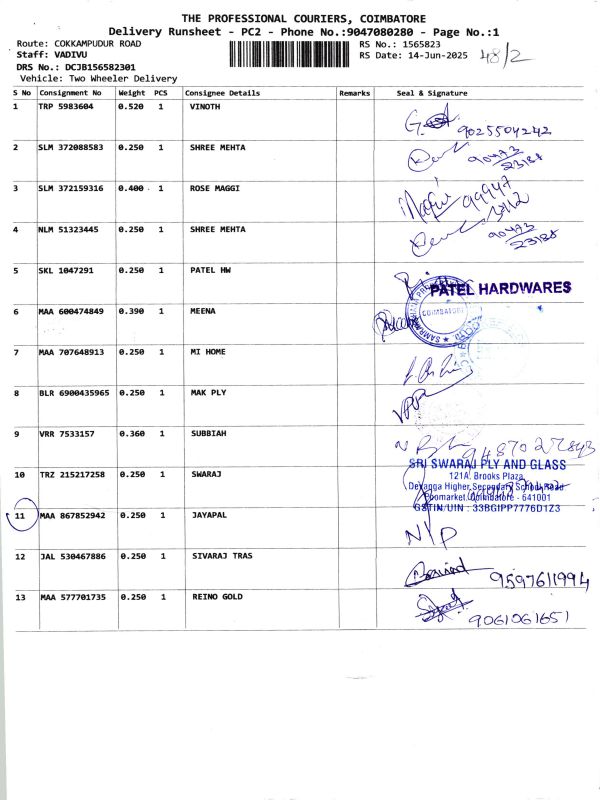 THE PROFESSIONAL COURIERS, COIMBATORE
Delivery Runsheet - PC2 - Phone No.:9047080280 - Page No.:1
Route: COKKAMPUDUR ROAD RS No.: 1565823
Staff: VADIVU RS Date: 14-Jun-2025 48/2
DRS No.: DCJB156582301
Vehicle: Two Wheeler Delivery
S No Consignment No Weight PCS Consignee Details Remarks Seal & Signature
1 TRP 5983604 0.520 1 VINOTH
9025504242
2 SLM 372088583 0.250 1 SHREE MEHTA
90473
23188
3 SLM 372159316 0.400 1 ROSE MAGGI
99947
4 NLM 51323445 0.250 1 SHREE MEHTA
90473
23188
5 SKL 1047291 0.250 1 PATEL HW
PATEL HARDWARES
6 MAA 600474849 0.390 1 MEENA
COIMBATORE
7 MAA 707648913 0.250 1 MI HOME
8 BLR 6900435965 0.250 1 MAK PLY
9 VRR 7533157 0.360 1 SUBBIAH
SRI SWARAJ PLY AND GLASS
10 TRZ 215217258 0.250 1 SWARAJ
121A, Brooks Plaza,
Devanga Higher Secondary School Road
Poomarket, Coimbatore - 641001
GSTIN/UIN : 33BGIPP7776D1Z3
11 MAA 867852942 0.250 1 JAYAPAL
N/P
12 JAL 530467886 0.250 1 SIVARAJ TRAS
9597611994
13 MAA 577701735 0.250 1 REINO GOLD
9061061651